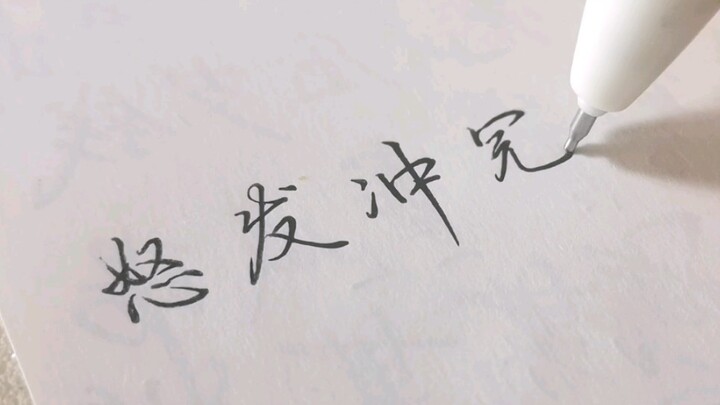 怒发冲冠